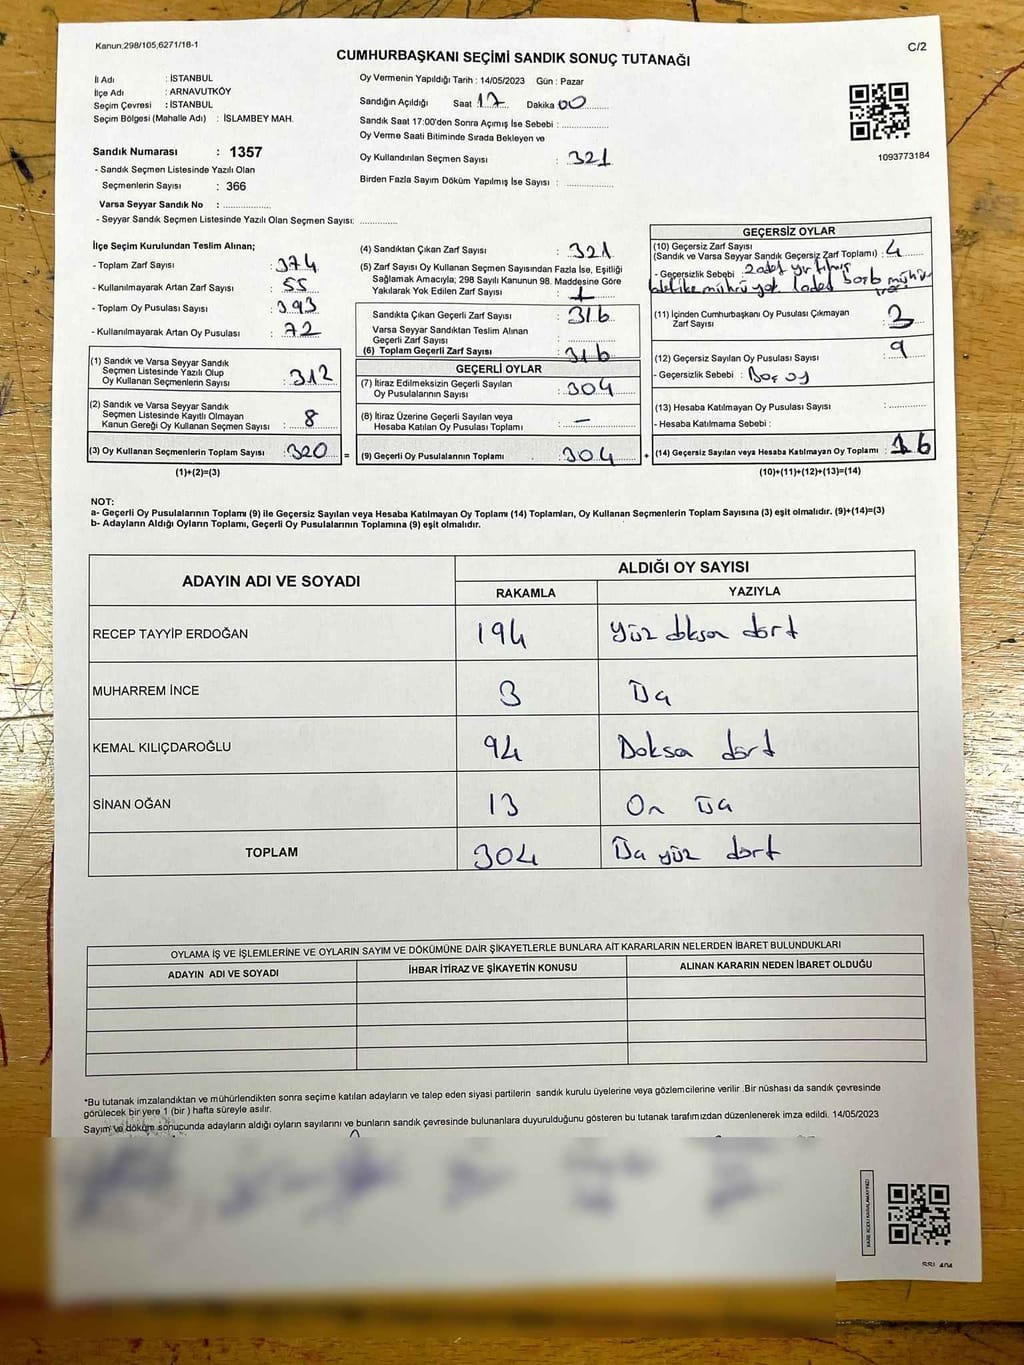 Kanun;298/105,6271/18-1
C/2
CUMHURBAŞKANI SEÇİMİ SANDIK SONUÇ TUTANAĞI
İl Adı : İSTANBUL
İlçe Adı : ARNAVUTKÖY
Seçim Çevresi : İSTANBUL
Seçim Bölgesi (Mahalle Adı) : İSLAMBEY MAH.
Sandık Numarası : 1357
- Sandık Seçmen Listesinde Yazılı Olan
Seçmenlerin Sayısı : 366
Varsa Seyyar Sandık No :
- Seyyar Sandık Seçmen Listesinde Yazılı Olan Seçmen Sayısı:
Oy Vermenin Yapıldığı Tarih : 14/05/2023 Gün : Pazar
Sandığın Açıldığı Saat 17 Dakika 00
Sandık Saat 17:00'den Sonra Açımış İse Sebebi :
Oy Verme Saati Bitiminde Sırada Bekleyen ve
Oy Kullandırılan Seçmen Sayısı : 321
Birden Fazla Sayım Döküm Yapılmış İse Sayısı :
1093773184
İlçe Seçim Kurulundan Teslim Alınan;
- Toplam Zarf Sayısı : 374
- Kullanılmayarak Artan Zarf Sayısı : 55
- Toplam Oy Pusulası Sayısı : 393
- Kullanılmayarak Artan Oy Pusulası : 72
(1) Sandık ve Varsa Seyyar Sandık
Seçmen Listesinde Yazılı Olup
Oy Kullanan Seçmenlerin Sayısı : 312
(2) Sandık ve Varsa Seyyar Sandık
Seçmen Listesinde Kayıtlı Olmayan
Kanun Gereği Oy Kullanan Seçmen Sayısı : 8
(3) Oy Kullanan Seçmenlerin Toplam Sayısı : 320 =
(1)+(2)=(3)
(4) Sandıktan Çıkan Zarf Sayısı : 321
(5) Zarf Sayısı Oy Kullanan Seçmen Sayısından Fazla İse, Eşitliği
Sağlamak Amacıyla; 298 Sayılı Kanunun 98. Maddesine Göre
Yakılarak Yok Edilen Zarf Sayısı : 1
Sandıkta Çıkan Geçerli Zarf Sayısı : 316
Varsa Seyyar Sandıktan Teslim Alınan
Geçerli Zarf Sayısı :
(6) Toplam Geçerli Zarf Sayısı : 316
GEÇERLİ OYLAR
(7) İtiraz Edilmeksizin Geçerli Sayılan
Oy Pusulalarının Sayısı : 304
(8) İtiraz Üzerine Geçerli Sayılan veya
Hesaba Katılan Oy Pusulası Toplamı : —
(9) Geçerli Oy Pusulalarının Toplamı : 304 +
GEÇERSİZ OYLAR
(10) Geçersiz Zarf Sayısı
(Sandık ve Varsa Seyyar Sandık Geçersiz Zarf Toplamı) : 4
- Geçersizlik Sebebi 2 adet yırtılmış
mührü yok 1 adet
(11) İçinden Cumhurbaşkanı Oy Pusulası Çıkmayan
Zarf Sayısı : 3
(12) Geçersiz Sayılan Oy Pusulası Sayısı : 9
- Geçersizlik Sebebi : Boş oy
(13) Hesaba Katılmayan Oy Pusulası Sayısı :
- Hesaba Katılmama Sebebi :
(14) Geçersiz Sayılan veya Hesaba Katılmayan Oy Toplamı : 16
(10)+(11)+(12)+(13)=(14)
NOT:
a- Geçerli Oy Pusulalarının Toplamı (9) ile Geçersiz Sayılan veya Hesaba Katılmayan Oy Toplamı (14) Toplamları, Oy Kullanan Seçmenlerin Toplam Sayısına (3) eşit olmalıdır. (9)+(14)=(3)
b- Adayların Aldığı Oyların Toplamı, Geçerli Oy Pusulalarının Toplamına (9) eşit olmalıdır.
ADAYIN ADI VE SOYADI
ALDIĞI OY SAYISI
RAKAMLA YAZIYLA
RECEP TAYYİP ERDOĞAN 194 Yüz doksan dört
MUHARREM İNCE 3 Üç
KEMAL KILIÇDAROĞLU 94 Doksan dört
SİNAN OĞAN 13 On Üç
TOPLAM 304 Üç yüz dört
OYLAMA İŞ VE İŞLEMLERİNE VE OYLARIN SAYIM VE DÖKÜMÜNE DAİR ŞİKAYETLERLE BUNLARA AİT KARARLARIN NELERDEN İBARET BULUNDUKLARI
ADAYIN ADI VE SOYADI İHBAR İTİRAZ VE ŞİKAYETİN KONUSU ALINAN KARARIN NEDEN İBARET OLDUĞU
*Bu tutanak imzalandıktan ve mühürlendikten sonra seçime katılan adayların ve talep eden siyasi partilerin sandık kurulu üyelerine veya gözlemcilerine verilir .Bir nüshası da sandık çevresinde
görülecek bir yere 1 (bir ) hafta süreyle asılır.
Sayım ve döküm sonucunda adayların aldığı oyların sayılarını ve bunların sandık çevresinde bulunanlara duyurulduğunu gösteren bu tutanak tarafımızdan düzenlenerek imza edildi. 14/05/2023